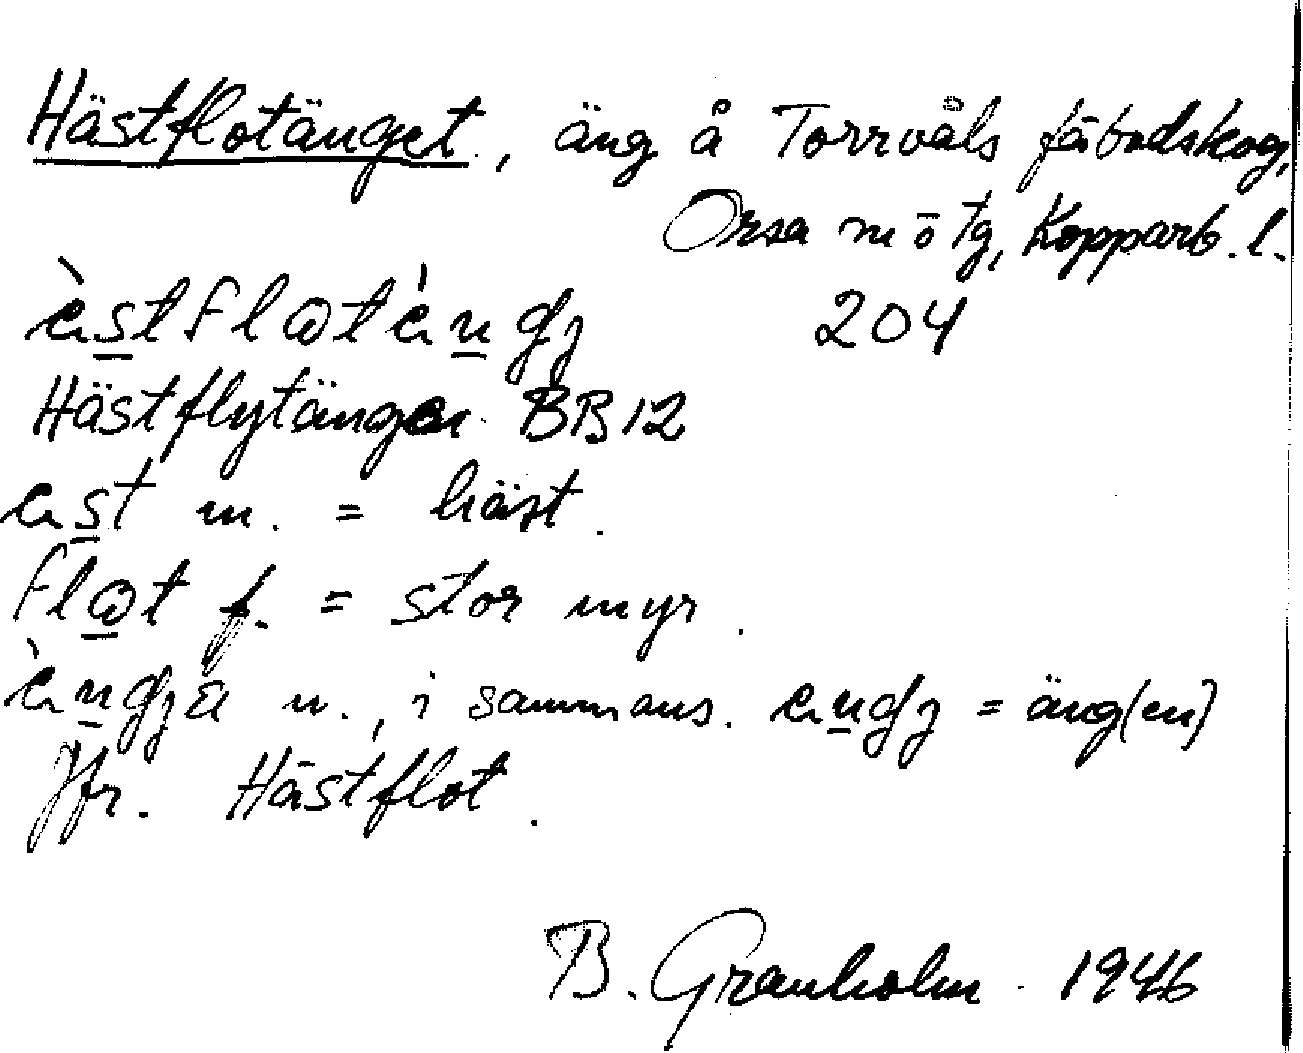 Hästflotänget, äng å Torrvåls fäbodskog,
Orsa m ö tg, Kopparb. l.
204
Hästflytängen BB12
m. = häst.
f. = stor myr.
n., i sammans. = äng(en)
Jfr. Hästflot.
B. Granholm 1946